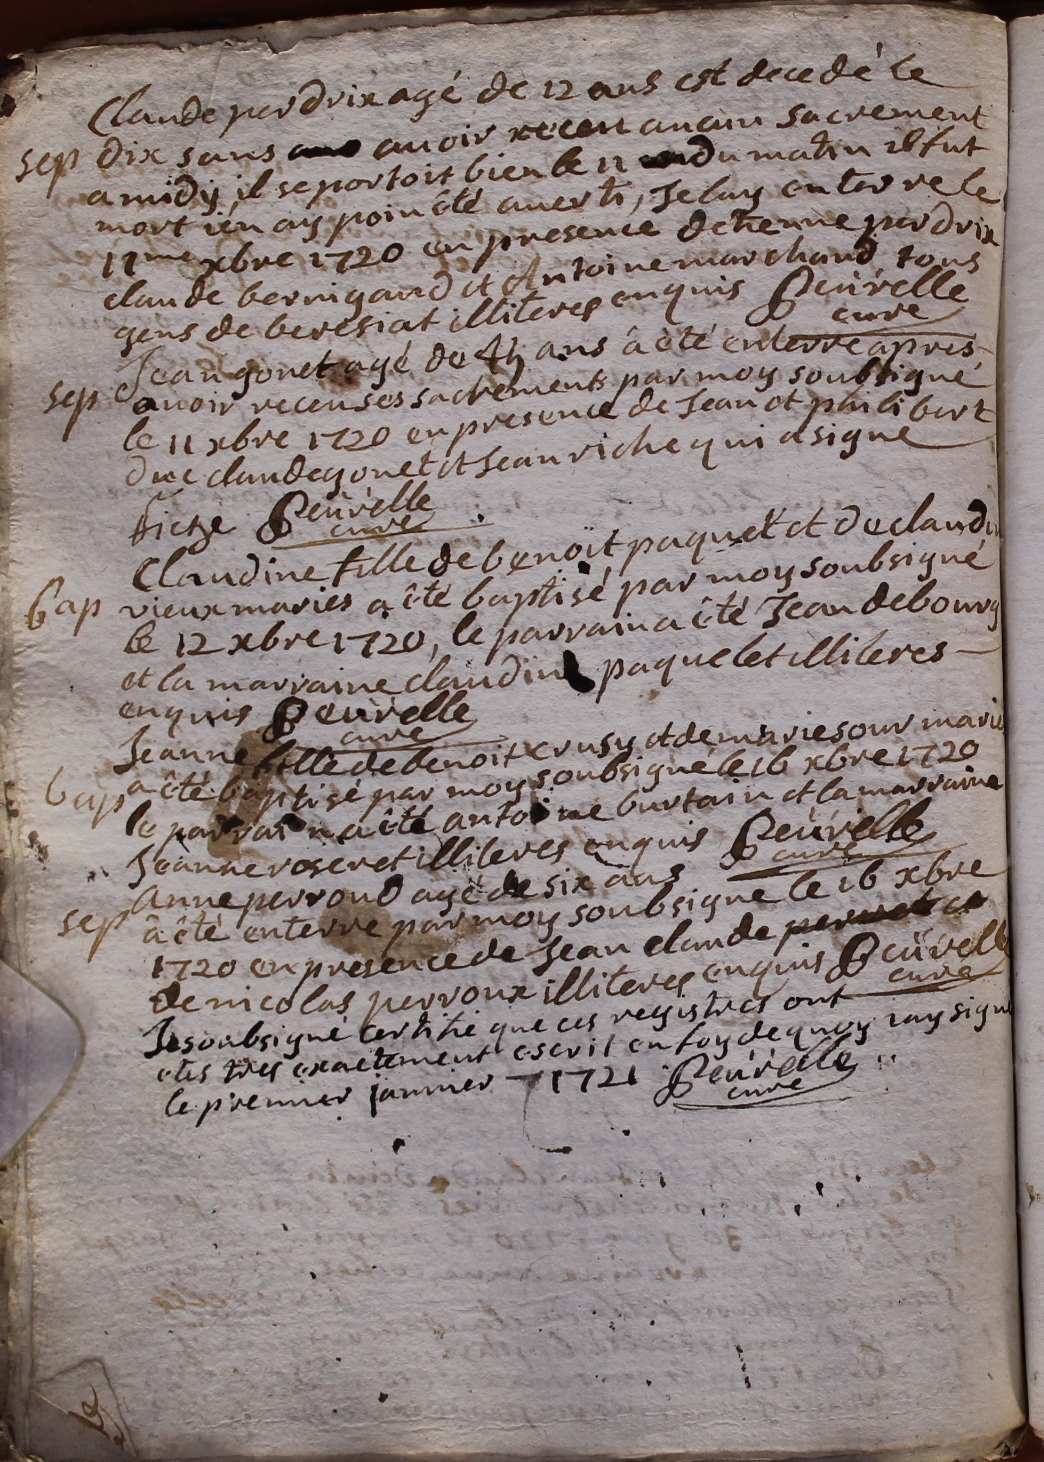 Claude perdrix agé de 12 ans est decedé le
sep dix sans avoir receu aucun sacrement
a midy, il se portoit bien le 11 du matin il fut
mort ien ay poin été averti, Je lay enterre le
11me xbre 1720 en presence detienne perdrix
claude bernigaud et Antoine marchand tous
gens de beresiat illiteres enquis Peuvrelle
curé
Jean gonet agé de 45 ans â été enterre apres
sep avoir receu ses sacrements par moy soubsigné
le 11 xbre 1720 en presence de Jean et philibert
duc claude gonet et Jean riche qui a signé
Riche Peuvrelle
curé
Claudine fille de benoit paquet et de claudine
bap vieux maries a été baptisé par moy soubsigné
le 12 xbre 1720, le parrain a été Jean debourg
et la marraine claudine paquelet illiteres
enquis Peuvrelle
curé
Jeanne fille de benoit crusy et de marie sour maries
bap a été baptisé par moy soubsigné le 16 xbre 1720
le parrain a été antoine burtain et la marraine
Jeanne roseret illiteres enquis Peuvrelle
curé
Anne perroud agé de six ans
sep â été enterre par moy soubsigne le 16 xbre
1720 en presence de Jean claude perret et
de nicolas perroux illiteres enquis Peuvrelle
curé
Je soubsigné certifie que ces registres ont
etes tres exactement escrit en foy de quoy iay signé
le premier janvier 1721 Peuvrelle
curé